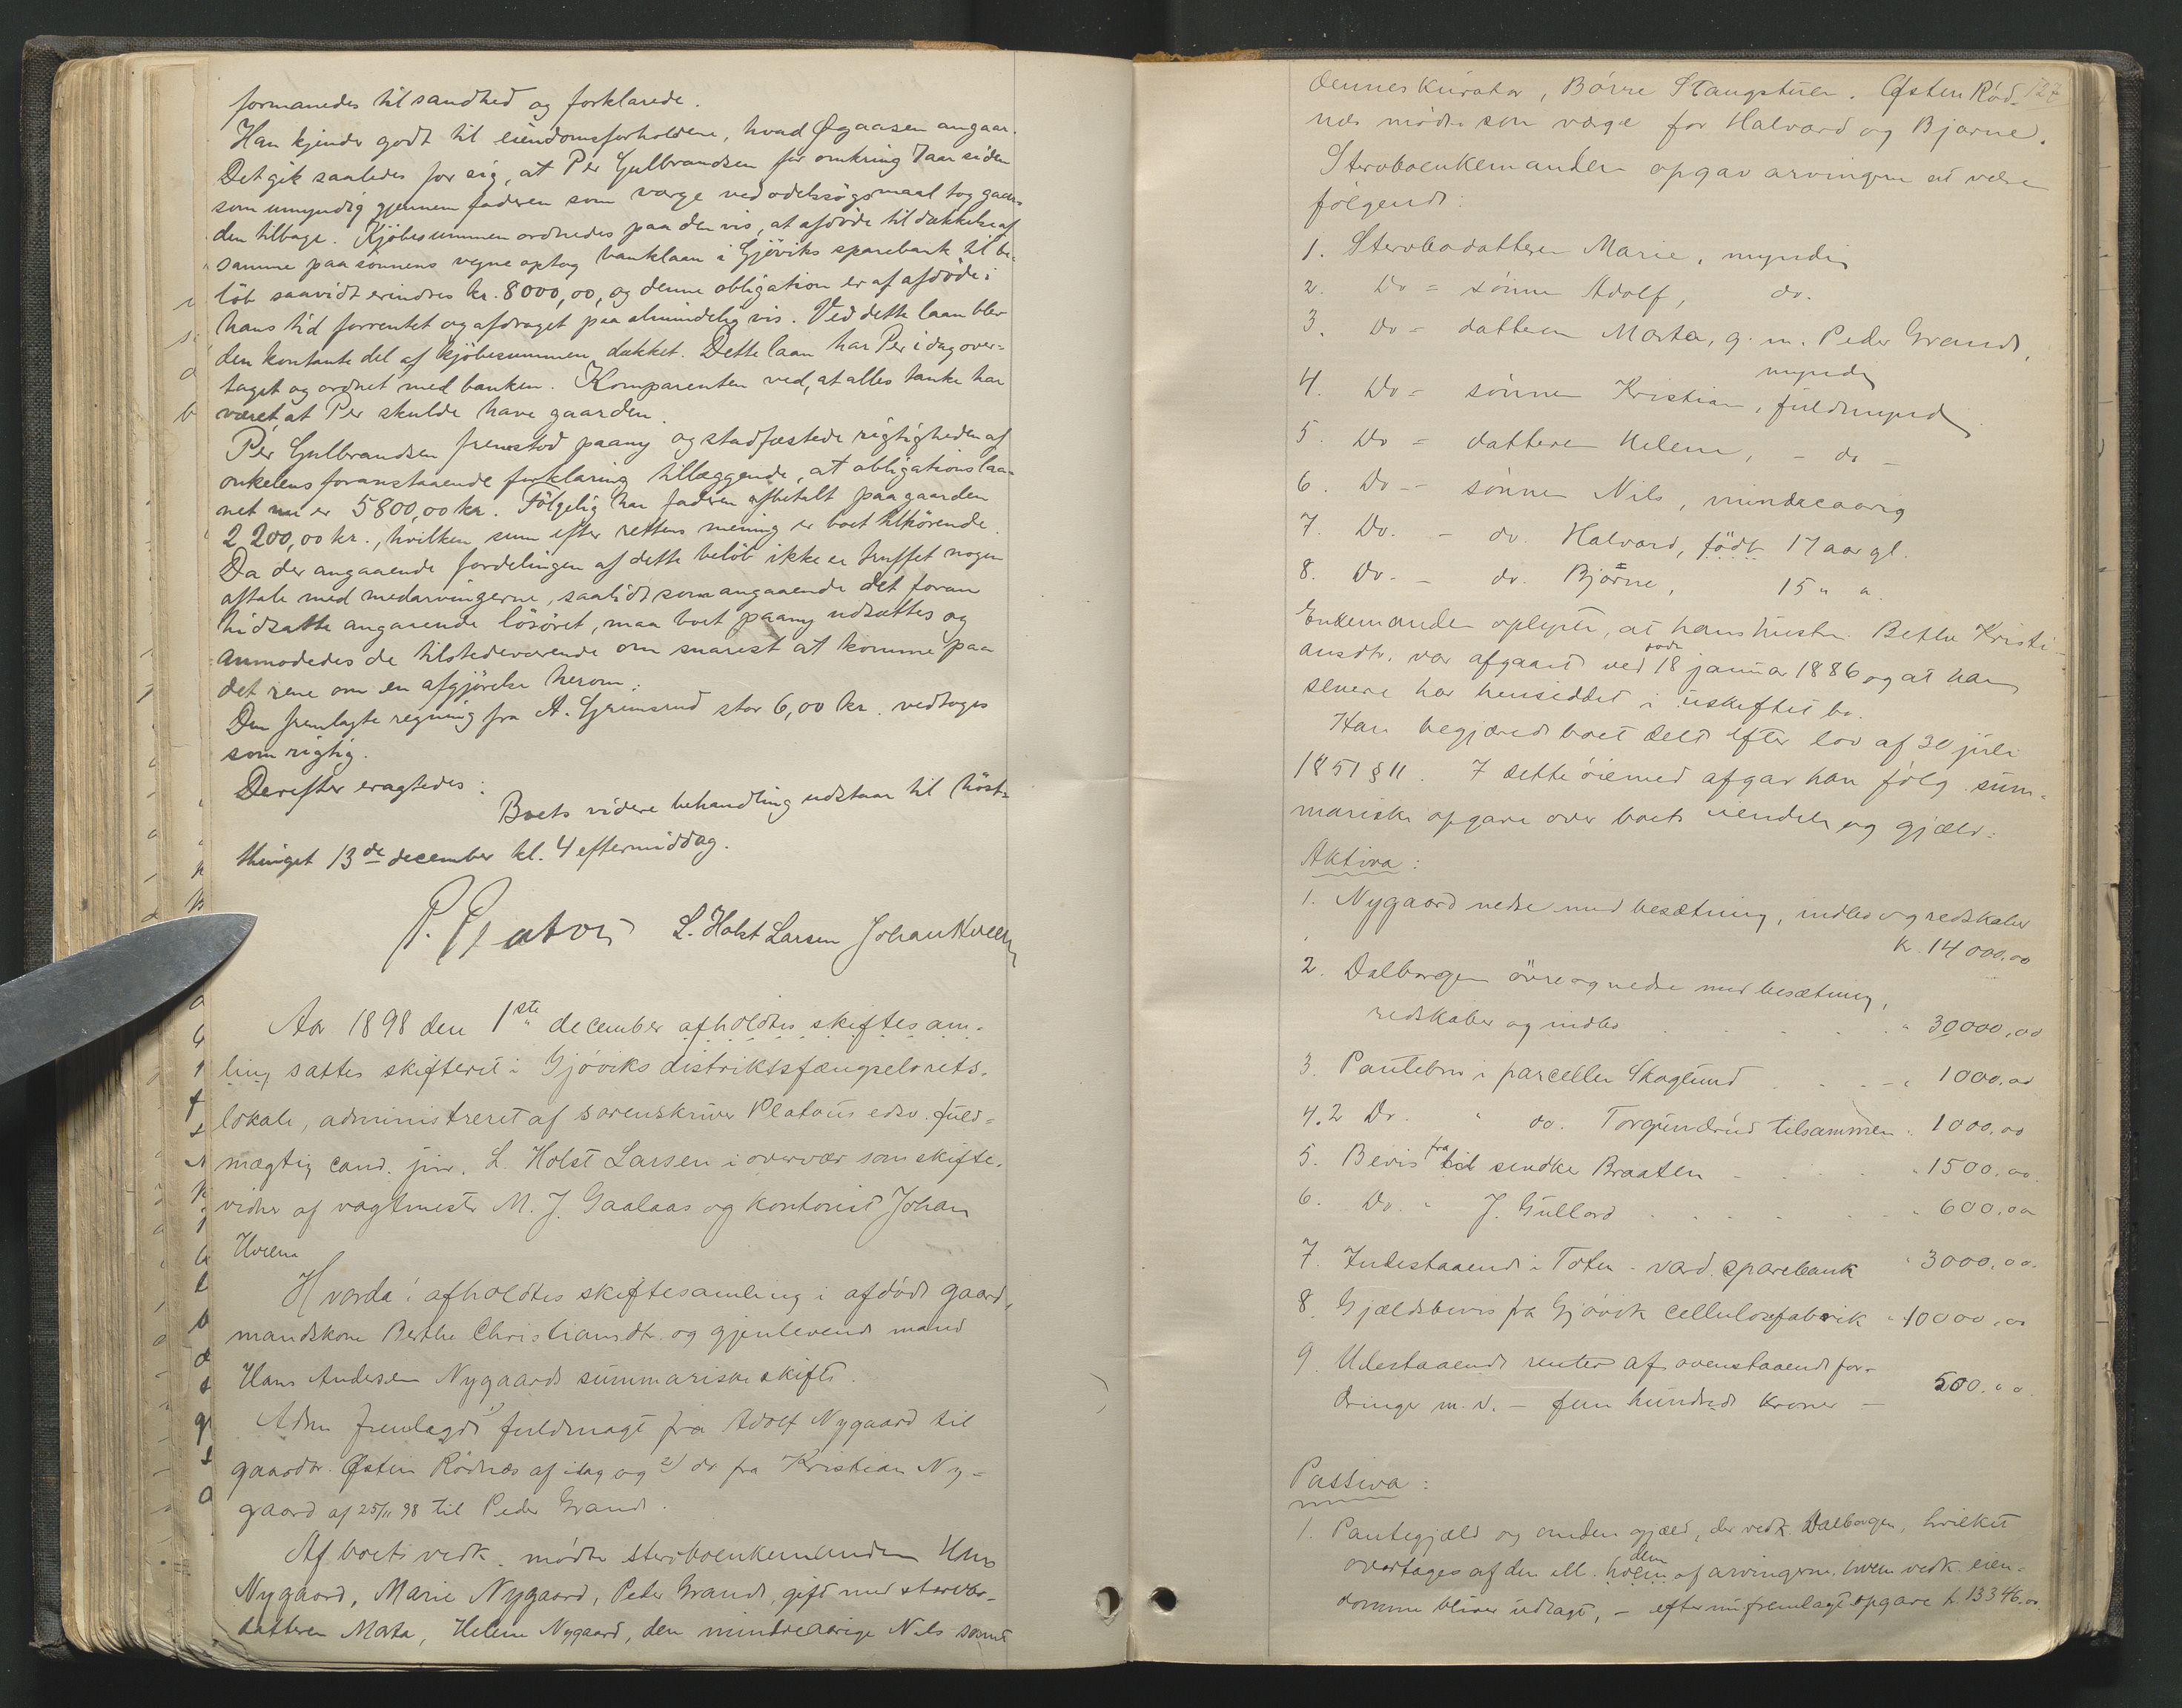 formanedes til sandhed og forklarede.
Han kjender godt til eiendomsforholdene, hvad Øgaasen angaar.
Det gik saaledes for sig, at Per Gulbrandsen for omkring 7 aar siden
som umyndig gjennem faderen som værge ved odelssøgsmaal tog gaar-
den tilbage. Kjöbesummen ordnedes paa den vis, at afdöde til dækkelse af
samme paa sönnens vegne optog banklaan i Gjöviks sparebank til be-
löb saavidt erindres kr. 8000,00, og denne obligation er af afdöde i
hans tid forrentet og afdraget paa almindelig vis. Ved dette laan blev
den kontante del af kjöbesummen dækket. Dette laan har Per i dag over-
taget og ordnet med banken. Komparenten ved, at alles tanke har
været, at Per skulde have gaarden.
Per Gulbrandsen fremstod paany og stadfæstede rigtigheden af
onkelens foranstaaende forklaring tillæggende, at obligationslaa-
net nu er 5800,00 kr. Fölgelig har faderen afbetalt paa gaarden
2 200,00 kr., hvilken sum efter rettens mening er boet tilhörende.
Da der angaaende fordelingen af dette belöb ikke er truffet nogen
aftale med medarvingerne, saalidt som angaaende det foran
hidsatte angaaende lösöret, maa boet paany udsættes og
anmodedes de tilstedeværende om snarest at komme paa
det rene om en afgjörelse herom.
Den fremlagte regning fra A. Grimsrud stor 6,00 kr. vedtoges
som rigtig.
Derefter eragtedes:
Boets videre behandling udstaar til höst-
thinget 13de december kl. 4 eftermiddag.
P. Platou L. Holst Larsen Johan Hveem
Aar 1898 den 1ste december afholdtes skiftesam-
ling sattes skifteret i Gjöviks distriktsfængselsrets-
lokale, administreret af sorenskriver Platous edsv. fuld-
mægtig cand. jur. L. Holst Larsen i overvær som skifte-
vidner af vagtmester M. J. Gaalaas og kontorist Johan
Hveem
Hvorda: afholdtes skiftesamling i afdöde gaard-
mandskone Berthe Christiansdtr. og gjenlevende mand
Hans Andersen Nygaards summariske skifte.
Adm fremlagde 1) fuldmagt fra Adolf Nygaard til
gaardbr. Østen Rödnes af idag og 2) do fra Kristian Ny-
gaard af 25/11 98 til Peder Grande.
Af boets vedk. mödte stervboenkemanden Hans
Nygaard, Marie Nygaard, Peder Grande, gift med stervbo-
datteren Marta, Helene Nygaard, den mindreaarige Nils samt
127
dennes kurator, Börre Stangstuen. Østen Röd-
nes mödte som værge for Halvard og Bjarne.
Stervboenkemanden opgav arvingerne at være
fölgende:
1. Stervbodatteren Marie, myndig
2. Do = sönnen Adolf, do.
3. Do - datteren Marta, g. m. Peder Grande,
myndig
4. Do = sönnen Kristian, fuldmynd
5. Do = datteren Helene, - do -
6. Do - sönnen Nils, mindreaarig
7. Do. - do. Halvard, födt 17 aar gl.
8. Do. - do. Bjarne, 15 " "
Enkemanden oplyste, at hans hustru Bethe Kristi-
ansdtr. var afgaaet ved döde 18 januar 1886 og at han
senere har hensiddet i uskiftet bo.
Han begjærede boet delt efter lov af 30 juli
1851 § 11. I dette öiemed afgav han fölg. sum-
mariske opgave over boets eiendele og gjæld:
Aktiva:
1. Nygaard nedre med besætning, indbo og redskaber
kr. 14 000,00
2. Dalborgen övre og nedre med besætning,
redskaber og indbo " 30000,00
3. Pantebrev i parcellen Skoglund " 1000,00
4. 2 Do. " do. Torgunrud tilsammen " 1000,00
5. Bevis fra til Braaten " 1500,00
6. Do. " J. Gullord " 600,00
7. Indestaaende i Toten - Vard. sparebank " 3000,00
8. Gjældsbevis fra Gjövik cellulosefabrik " 10000,00
9. Udestaaende renter af ovenstaaende for-
dringer m. v. - fem hundrede kroner - 500,00
Passiva:
1. Pantegjæld og anden gjæld, der vedk. Dalborgen, hvilket
overtages af den ell. dem af arvingerne, hvem vedk. eien-
domme bliver udlagt, - efter nu fremlagt opgave k. 13346,00